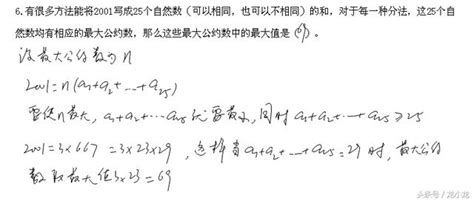 6.有很多方法能将2001写成25个自然数（可以相同，也可以不相同）的和，对于每一种分法，这25个自
然数均有相应的最大公约数，那么这些最大公约数中的最大值是（69）。
设最大公约数为n
2001=n(a₁+a₂+…+a₂₅)
要使n最大，a₁+a₂+…a₂₅就要最小，同时a₁+a₂+…+a₂₅≥25
2001=3×667=3×23×29，这样当a₁+a₂+…+a₂₅=29时，最大公约
数取最大值3×23=69
头条@龙小龙